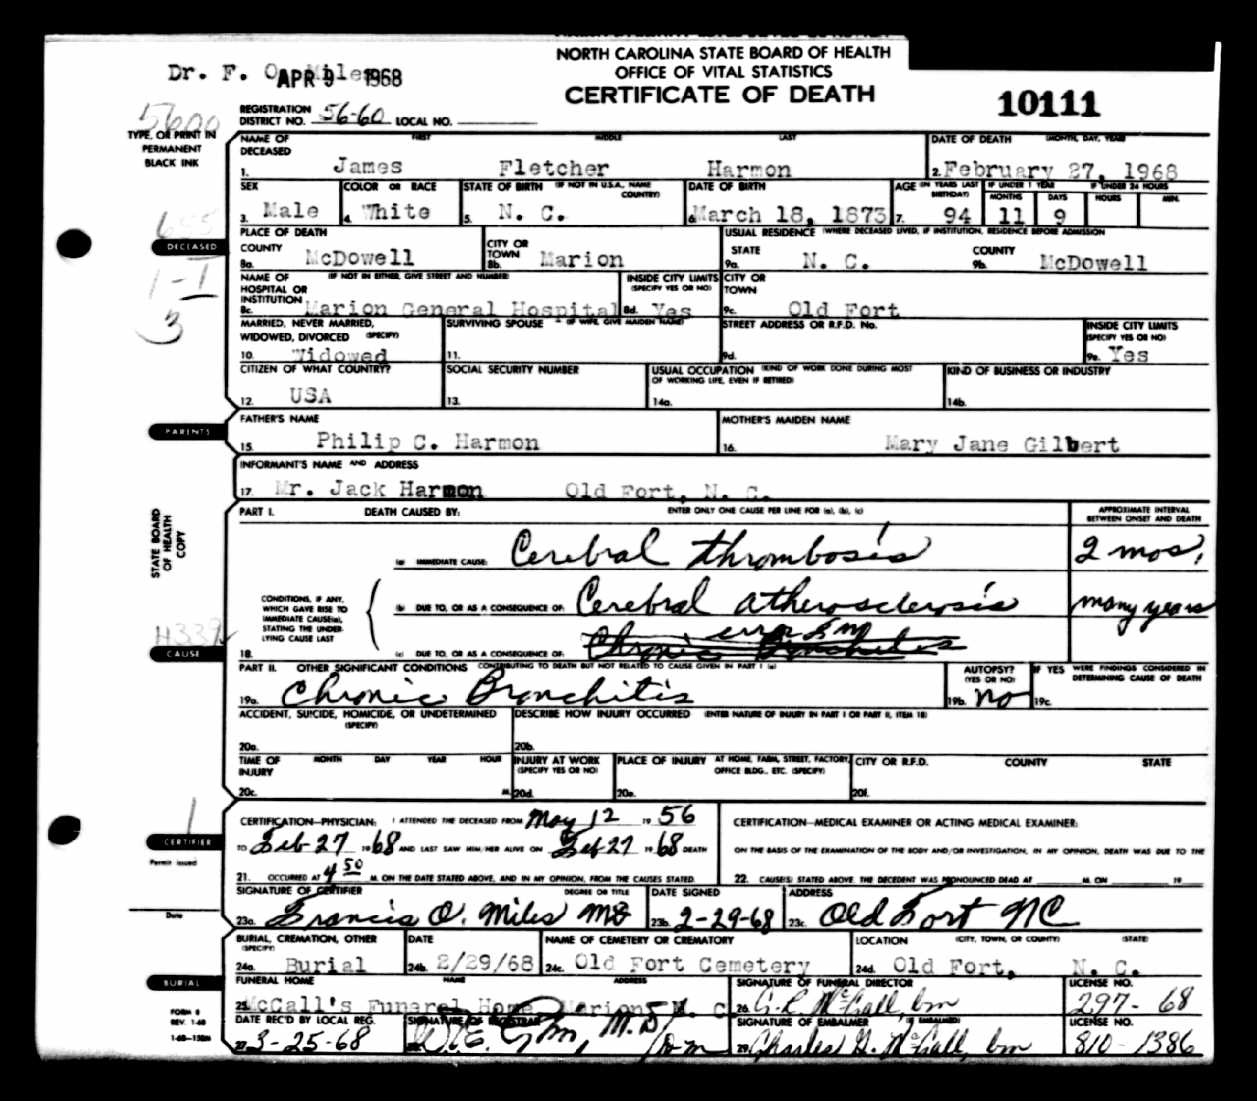 NORTH CAROLINA STATE BOARD OF HEALTH
OFFICE OF VITAL STATISTICS
CERTIFICATE OF DEATH
10111
Dr. F. O. Miles
APR 9 1968
5600
REGISTRATION DISTRICT NO. 56-60 LOCAL NO.
TYPE, OR PRINT IN PERMANENT BLACK INK
NAME OF DECEASED FIRST MIDDLE LAST DATE OF DEATH (MONTH, DAY, YEAR)
1. James Fletcher Harmon 2. February 27, 1968
SEX COLOR OR RACE STATE OF BIRTH (IF NOT IN U.S.A., NAME COUNTRY) DATE OF BIRTH AGE (IN YEARS LAST BIRTHDAY) IF UNDER 1 YEAR MONTHS DAYS IF UNDER 24 HOURS HOURS MIN.
3. Male 4. White 5. N. C. 6. March 18, 1873 7. 94 11 9
DECEASED
PLACE OF DEATH USUAL RESIDENCE (WHERE DECEASED LIVED, IF INSTITUTION, RESIDENCE BEFORE ADMISSION
COUNTY CITY OR TOWN STATE COUNTY
8a. McDowell 8b. Marion 9a. N. C. 9b. McDowell
1-1
3
NAME OF HOSPITAL OR INSTITUTION (IF NOT IN EITHER, GIVE STREET AND NUMBER) INSIDE CITY LIMITS (SPECIFY YES OR NO) CITY OR TOWN
8c. Marion General Hospital 8d. Yes 9c. Old Fort
MARRIED, NEVER MARRIED, WIDOWED, DIVORCED (SPECIFY) SURVIVING SPOUSE (IF WIFE, GIVE MAIDEN NAME) STREET ADDRESS OR R.F.D. No. INSIDE CITY LIMITS (SPECIFY YES OR NO)
10. Widowed 11. 9d. 9e. Yes
CITIZEN OF WHAT COUNTRY? SOCIAL SECURITY NUMBER USUAL OCCUPATION (KIND OF WORK DONE DURING MOST OF WORKING LIFE, EVEN IF RETIRED) KIND OF BUSINESS OR INDUSTRY
12. USA 13. 14a. 14b.
PARENTS
FATHER'S NAME MOTHER'S MAIDEN NAME
15. Philip C. Harmon 16. Mary Jane Gilbert
INFORMANT'S NAME AND ADDRESS
17. Mr. Jack Harmon Old Fort, N. C.
STATE BOARD OF HEALTH COPY
PART I. DEATH CAUSED BY: ENTER ONLY ONE CAUSE PER LINE FOR (a), (b), (c) APPROXIMATE INTERVAL BETWEEN ONSET AND DEATH
(a) IMMEDIATE CAUSE: Cerebral thrombosis 2 mos.
CONDITIONS, IF ANY, WHICH GAVE RISE TO IMMEDIATE CAUSE(a), STATING THE UNDERLYING CAUSE LAST
(b) DUE TO, OR AS A CONSEQUENCE OF: Cerebral atherosclerosis many years
error FM
18. (c) DUE TO, OR AS A CONSEQUENCE OF: Chronic Bronchitis
CAUSE
PART II. OTHER SIGNIFICANT CONDITIONS CONTRIBUTING TO DEATH BUT NOT RELATED TO CAUSE GIVEN IN PART I (a) AUTOPSY? (YES OR NO) IF YES WERE FINDINGS CONSIDERED IN DETERMINING CAUSE OF DEATH
19a. Chronic Bronchitis 19b. no 19c.
ACCIDENT, SUICIDE, HOMICIDE, OR UNDETERMINED (SPECIFY) DESCRIBE HOW INJURY OCCURRED (ENTER NATURE OF INJURY IN PART I OR PART II, ITEM 18)
20a. 20b.
TIME OF INJURY MONTH DAY YEAR HOUR INJURY AT WORK (SPECIFY YES OR NO) PLACE OF INJURY AT HOME, FARM, STREET, FACTORY, OFFICE BLDG., ETC. (SPECIFY) CITY OR R.F.D. COUNTY STATE
20c. M. 20d. 20e. 20f.
CERTIFICATION—PHYSICIAN: I ATTENDED THE DECEASED FROM May 12 19 56 CERTIFICATION—MEDICAL EXAMINER OR ACTING MEDICAL EXAMINER:
CERTIFIER
TO Feb 27 1968 AND LAST SAW HIM/HER ALIVE ON Feb 27 1968 DEATH ON THE BASIS OF THE EXAMINATION OF THE BODY AND/OR INVESTIGATION, IN MY OPINION, DEATH WAS DUE TO THE
21. OCCURRED AT 4 50 M. ON THE DATE STATED ABOVE, AND IN MY OPINION, FROM THE CAUSES STATED. 22. CAUSE(S) STATED ABOVE. THE DECEDENT WAS PRONOUNCED DEAD AT M. ON 19
Permit issued
Date
SIGNATURE OF CERTIFIER DEGREE OR TITLE DATE SIGNED ADDRESS
23a. Francis O. Miles MD 23b. 2-29-68 23c. Old Fort NC
BURIAL, CREMATION, OTHER (SPECIFY) DATE NAME OF CEMETERY OR CREMATORY LOCATION (CITY, TOWN, OR COUNTY) (STATE)
24a. Burial 24b. 2/29/68 24c. Old Fort Cemetery 24d. Old Fort, N. C.
BURIAL
FUNERAL HOME NAME ADDRESS SIGNATURE OF FUNERAL DIRECTOR LICENSE NO.
25. McCall's Funeral Home Marion, N. C. 26. 297- 68
FORM 8
REV. 1-68
DATE REC'D BY LOCAL REG. SIGNATURE OF REGISTRAR SIGNATURE OF EMBALMER (IF EMBALMED) LICENSE NO.
27. 3-25-68 28. M.D. 29. Charles G. McCall, bm 810- 1386